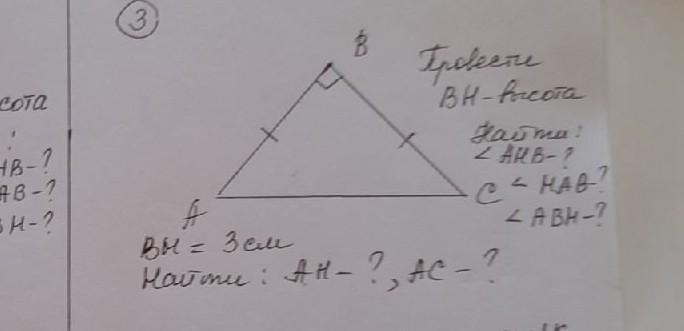 сота
:
HB-?
AB-?
H-?
3
B
A
C
Провести
BH-высота
Найти:
< AHB-?
< HAB-?
< ABH-?
BH = 3 см
Найти: AH-?, AC-?